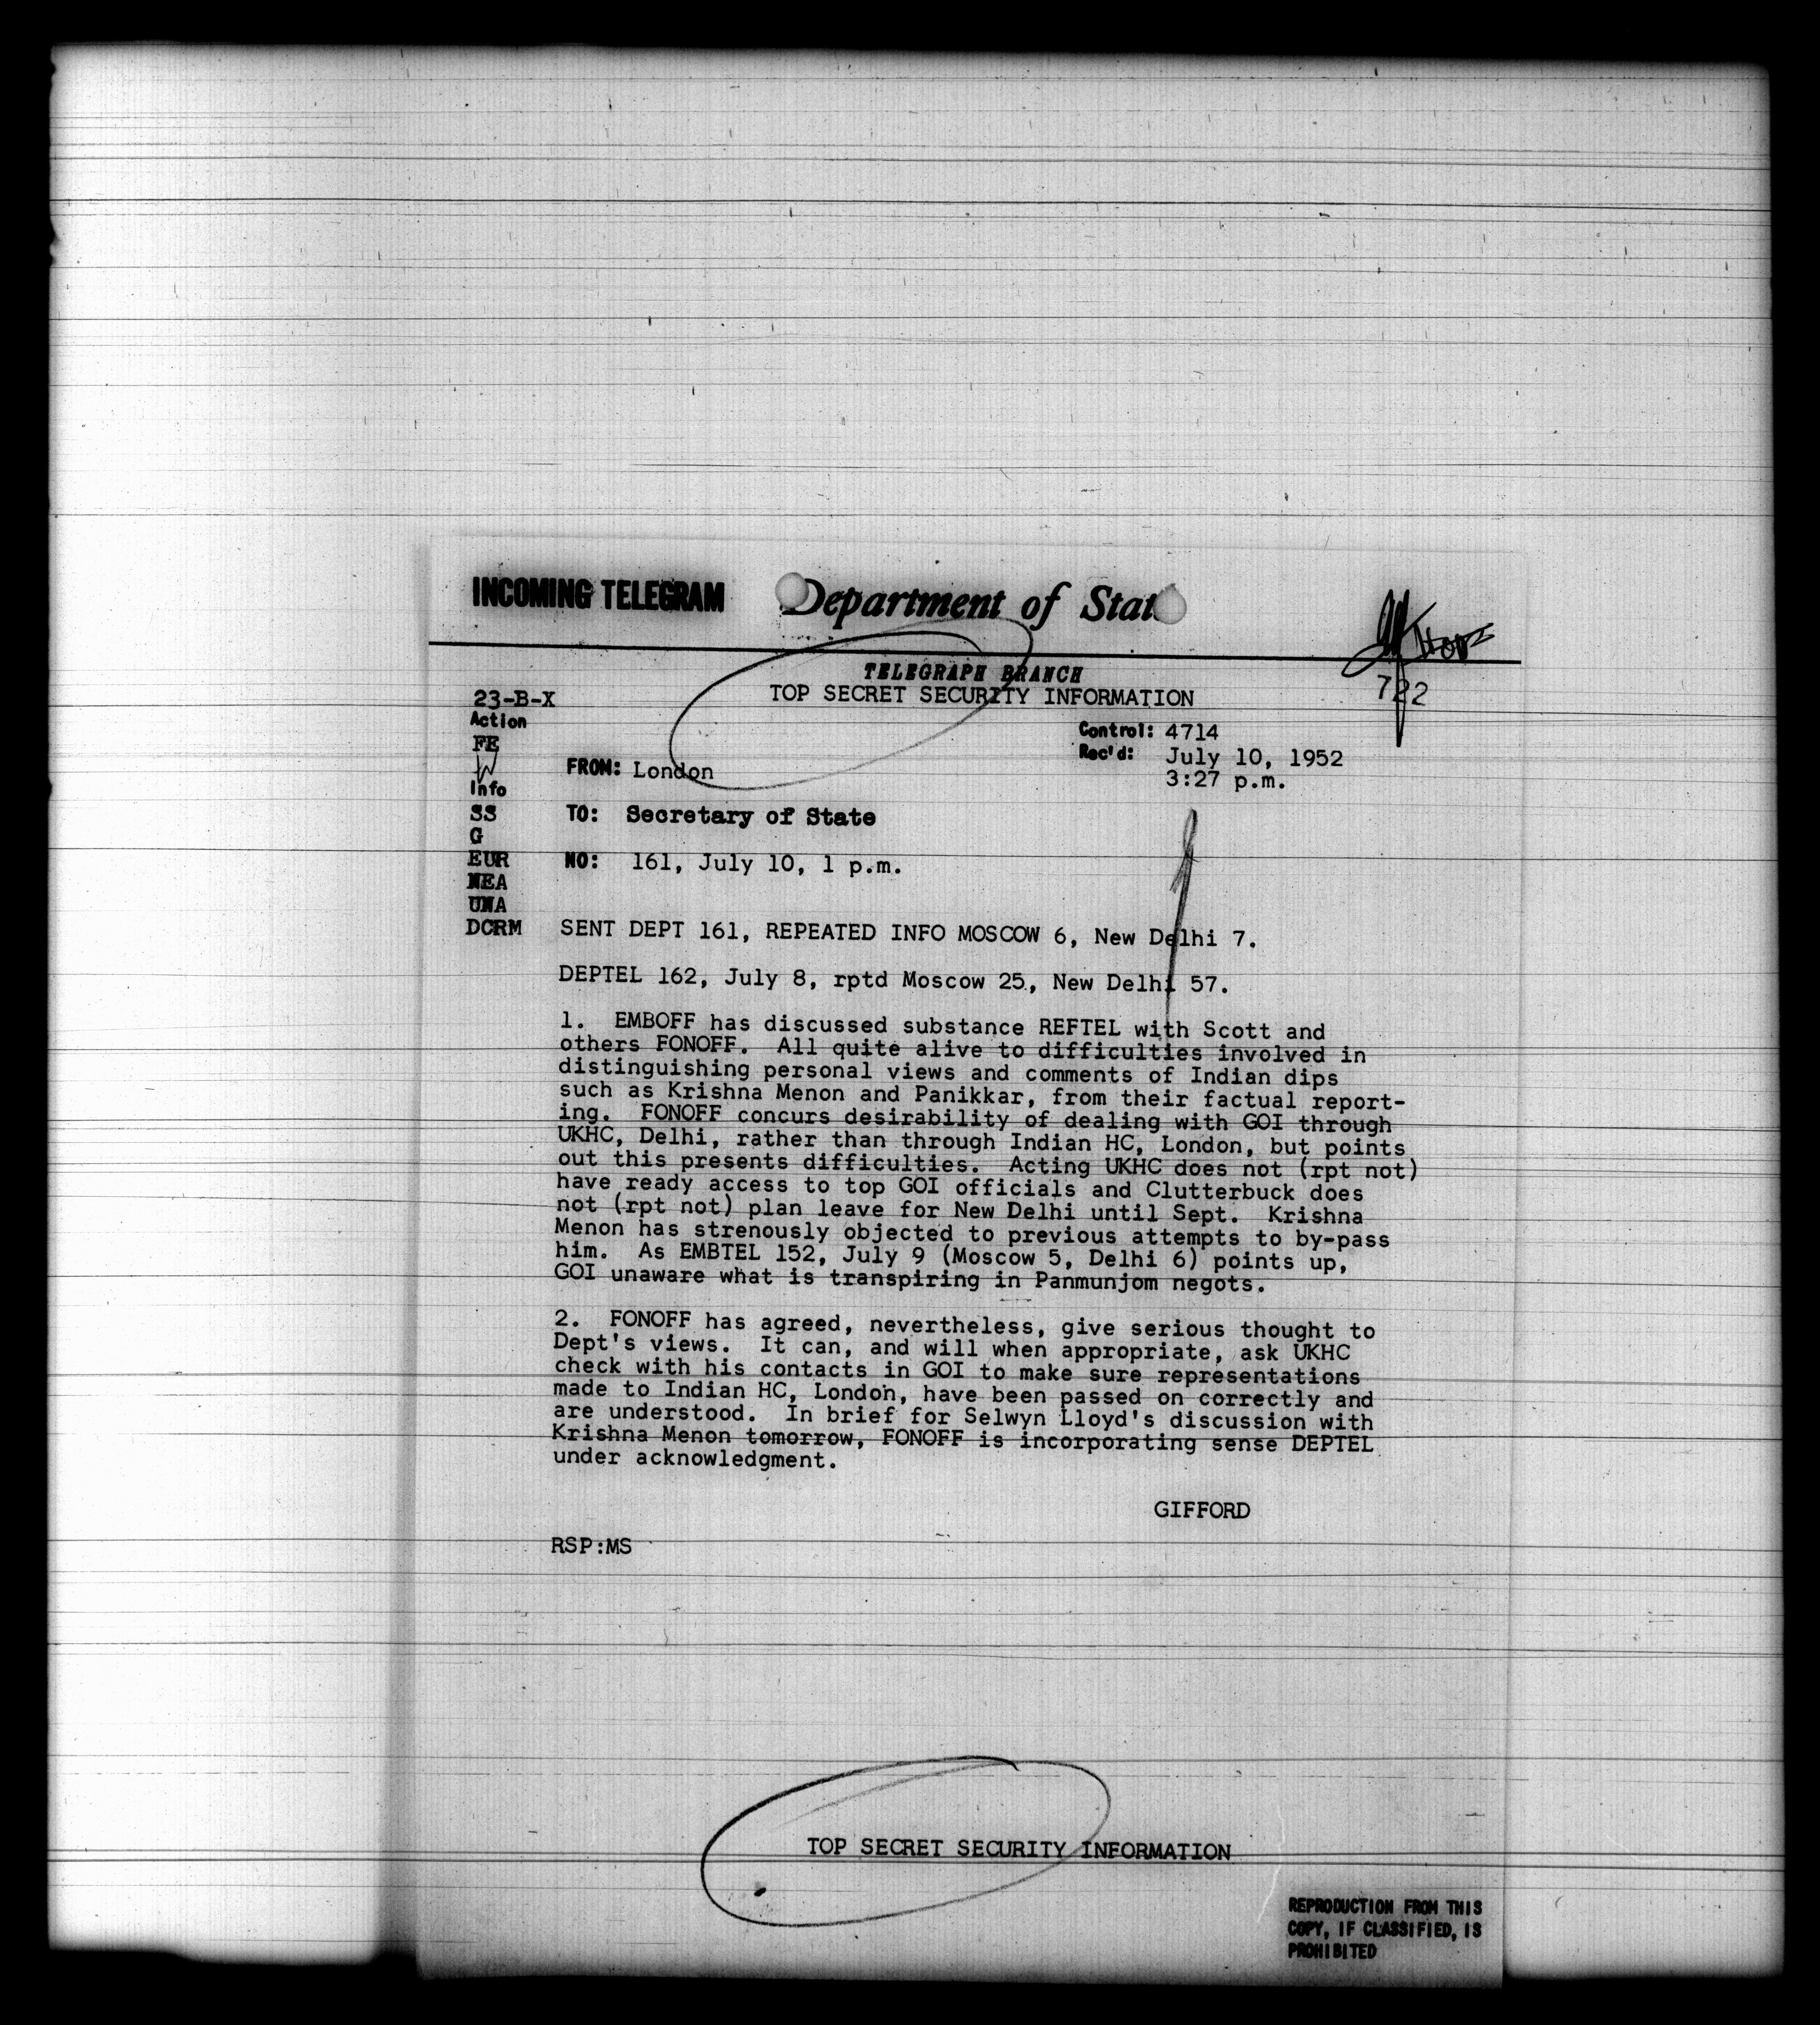 INCOMING TELEGRAM Department of State
TELEGRAPH BRANCH
TOP SECRET SECURITY INFORMATION
722
23-B-X
Action
FE
Info
SS
G
EUR
NEA
UNA
DCRM
Control: 4714
Rec'd: July 10, 1952
3:27 p.m.
FROM: London
TO: Secretary of State
NO: 161, July 10, 1 p.m.
SENT DEPT 161, REPEATED INFO MOSCOW 6, New Delhi 7.
DEPTEL 162, July 8, rptd Moscow 25, New Delhi 57.
1. EMBOFF has discussed substance REFTEL with Scott and
others FONOFF. All quite alive to difficulties involved in
distinguishing personal views and comments of Indian dips
such as Krishna Menon and Panikkar, from their factual report-
ing. FONOFF concurs desirability of dealing with GOI through
UKHC, Delhi, rather than through Indian HC, London, but points
out this presents difficulties. Acting UKHC does not (rpt not)
have ready access to top GOI officials and Clutterbuck does
not (rpt not) plan leave for New Delhi until Sept. Krishna
Menon has strenously objected to previous attempts to by-pass
him. As EMBTEL 152, July 9 (Moscow 5, Delhi 6) points up,
GOI unaware what is transpiring in Panmunjom negots.
2. FONOFF has agreed, nevertheless, give serious thought to
Dept's views. It can, and will when appropriate, ask UKHC
check with his contacts in GOI to make sure representations
made to Indian HC, London, have been passed on correctly and
are understood. In brief for Selwyn Lloyd's discussion with
Krishna Menon tomorrow, FONOFF is incorporating sense DEPTEL
under acknowledgment.
GIFFORD
RSP:MS
TOP SECRET SECURITY INFORMATION
REPRODUCTION FROM THIS
COPY, IF CLASSIFIED, IS
PROHIBITED